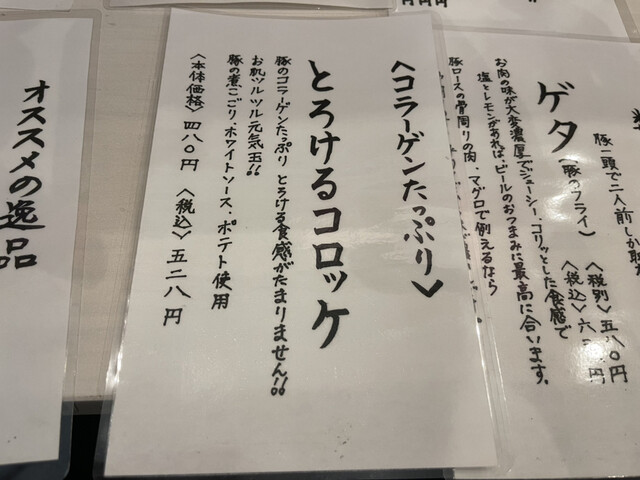 〈コラーゲンたっぷり〉
とろけるコロッケ
豚のコラーゲンたっぷり とろける食感がたまりません!!
お肌ツルツル元気玉!!
豚の煮こごり・ホワイトソース・ポテト使用
〈本体価格〉四八〇円 〈税込〉五二八円
豚一頭で二人前しか
〈税別〉五八〇円
〈税込〉六 円
ゲタ〈豚のフライ〉
お肉の味が大変濃厚でジューシー、コリッとした食感で
塩とレモンがあれば、ビールのおつまみに最高に合います。
豚ロースの骨周りの肉・マグロで例えるなら
オススメの逸品